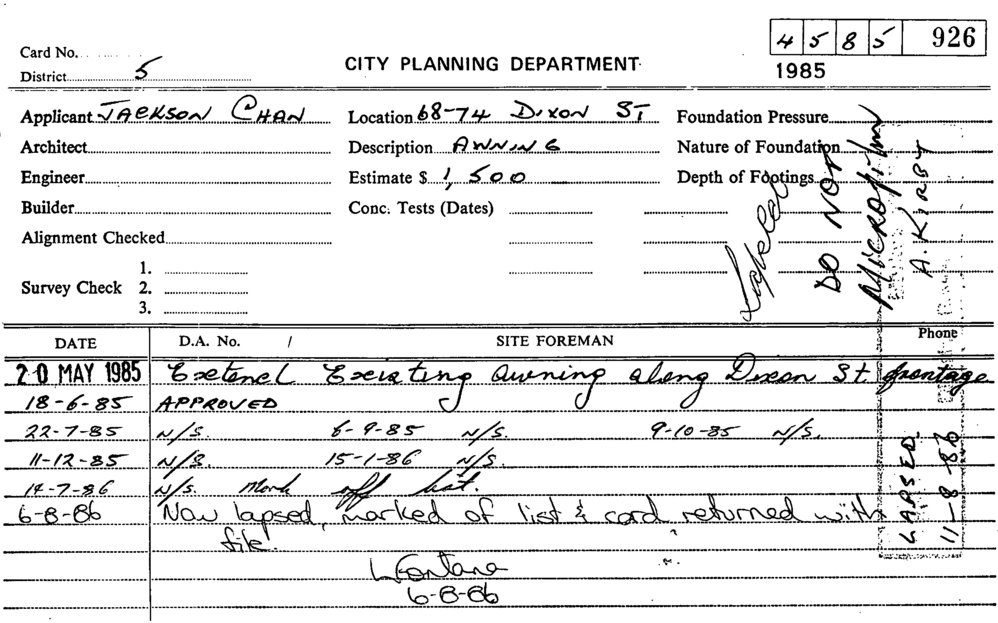 4 5 8 5 926
1985
Card No.
District 5
CITY PLANNING DEPARTMENT
Applicant JACKSON CHAN
Location 68-74 DIXON ST
Foundation Pressure
Architect
Description AWNING
Nature of Foundation
Engineer
Estimate $ 1,500
Depth of Footings
Builder
Conc. Tests (Dates)
Alignment Checked
Survey Check
1.
2.
3.
Lapsed
DO NOT
MICROFILM
A. KIRBY
DATE D.A. No. / SITE FOREMAN Phone
20 MAY 1985 Extend Existing awning along Dixon St. frontage
18-6-85 APPROVED
22-7-85 N/S. 6-9-85 N/S. 9-10-85 N/S.
11-12-85 N/S. 15-1-86 N/S.
14-7-86 N/S. Mark off list.
6-8-86 Now lapsed, marked of list & card returned with
file.
L Fontana
6-8-86
LAPSED.
11-8-86